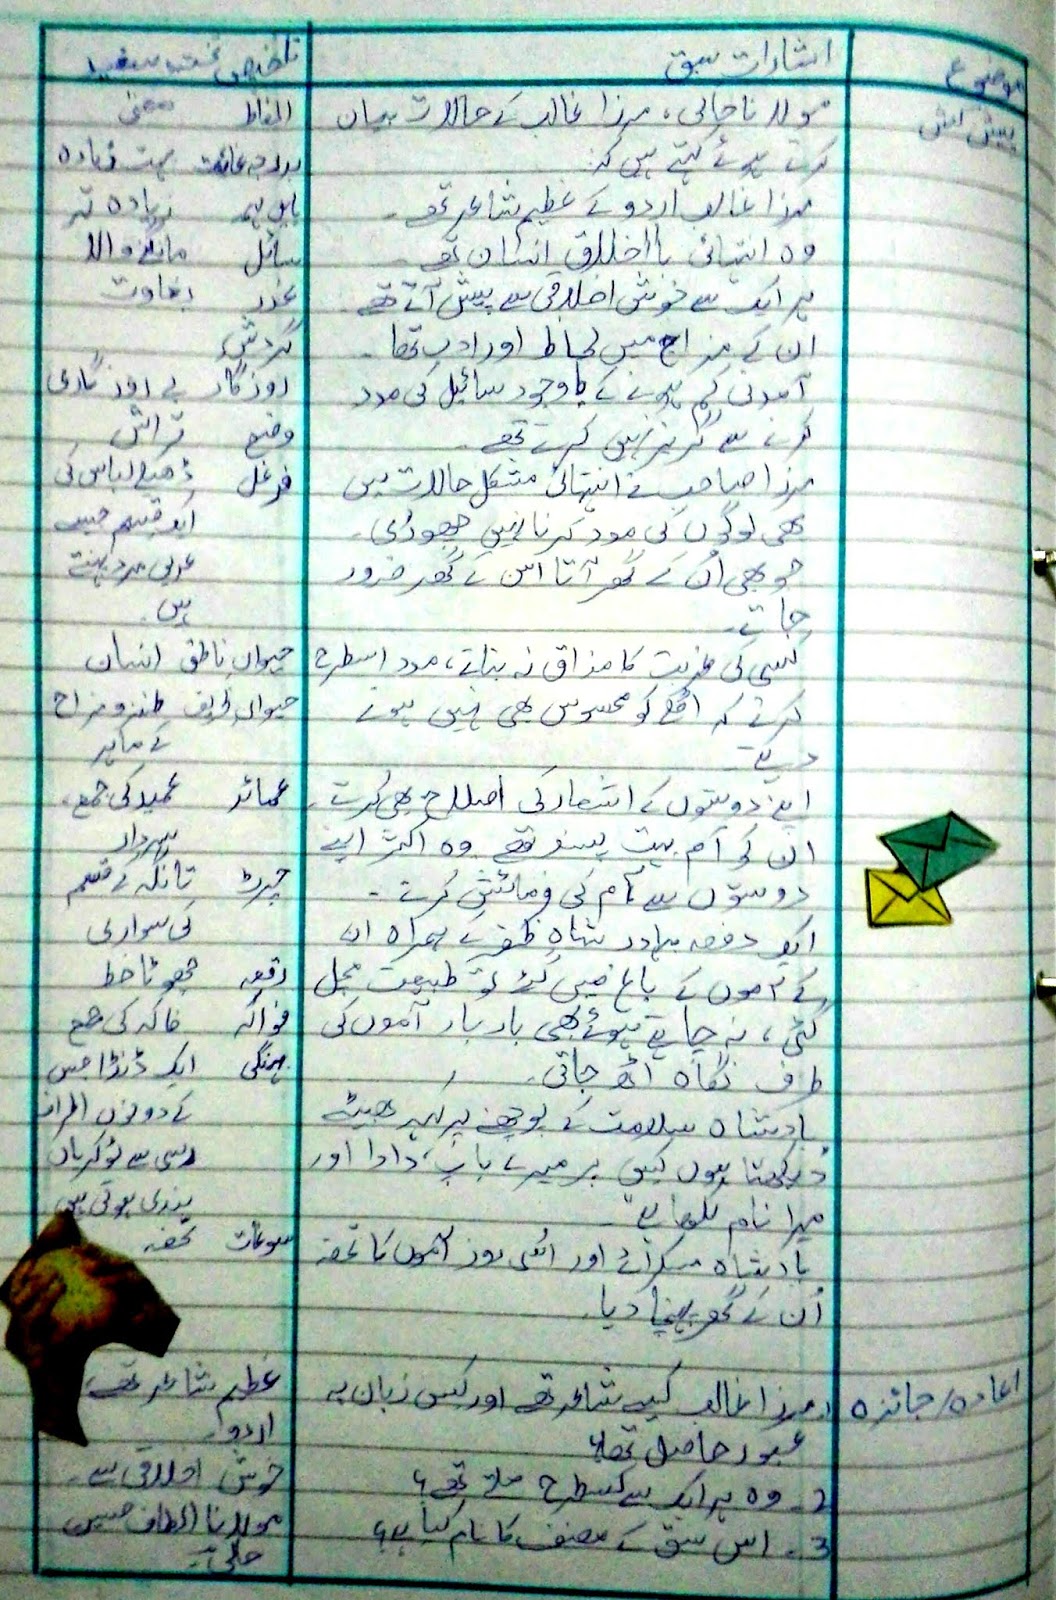 موضوع
اشارات سبق
تلخیص تختہ سفید
پیش کش
مولانا حالی، مرزا غالب کے حالات بیان
کرتے ہوئے کہتے ہیں کہ:
مرزا غالب اردو کے عظیم شاعر تھے۔
وہ انتہائی بااخلاق انسان تھے۔
ہر ایک سے خوش اخلاقی سے پیش آتے تھے۔
ان کے مزاج میں لحاظ اور ادب تھا۔
آمدنی کم ہونے کے باوجود سائیل کی مدد
کرنے سے گریز نہیں کرتے تھے۔
مرزا صاحب نے انتہائی مشکل حالات میں
بھی لوگوں کی مدد کرنا نہیں چھوڑی۔
جو بھی اُن کے گھر آتا اس کے گھر ضرور
جاتے۔
کسی کی غربت کا مذاق نہ بناتے، مدد اسطرح
کرتے کہ اگلے کو محسوس بھی نہیں ہونے
دیتے۔
اپنے دوستوں کے اشعار کی اصلاح بھی کرتے۔
ان کو آم بہت پسند تھے وہ اکثر اپنے
دوستوں سے آم کی فرمائش کرتے۔
ایک دفعہ بہادر شاہ ظفر کے ہمراہ ان
کے آموں کے باغ میں گئے تو طبیعت مچل
گئی، نہ چاہتے ہوئے بھی بار بار آموں کی
طرف نگاہ اٹھ جاتی۔
بادشاہ سلامت کے پوچھنے پر کہہ بیٹھے
"دیکھتا ہوں کیس پر میرے باپ، دادا اور
میرا نام لکھا ہے"۔
بادشاہ مسکرائے اور اسی روز آموں کا تحفہ
اُن کے گھر پہنچا دیا۔
الفاظ معنی
بدرجہ غائت بہت زیادہ
بایں ہمہ زیادہ تر
سائل مانگنے والا
غدر بغاوت
گردشِ
روزگار بے روزگاری
وضع تراش
فرغل ڈھیلے لباس کی
ایک قسم جسے
عربی مرد پہنتے
ہیں۔
حیوانِ ناطق انسان
حیوانِ ظریف طنز و مزاح
کے ماہر
عمائد عمید کی جمع،
سردار
چرٹ تانگہ کے قسم
کی سواری
رقعہ چھوٹا خط
فواکہ فاکہ کی جمع
بہنگی ایک ڈنڈا جس
کے دونوں اطراف
رسی سے ٹوکریاں
بندی ہوتی ہیں
سوغات تحفہ
اعادہ/جائزہ
1۔ مرزا غالب کیسے شاعر تھے اور کس زبان پہ
عبور حاصل تھا؟
2۔ وہ ہر ایک سے کسطرح ملتے تھے؟
3۔ اس سبق کے مصنف کا نام کیا ہے؟
عظیم شاعر تھے،
اردو۔
خوش اخلاقی سے۔
مولانا الطاف حسین
حالی۔